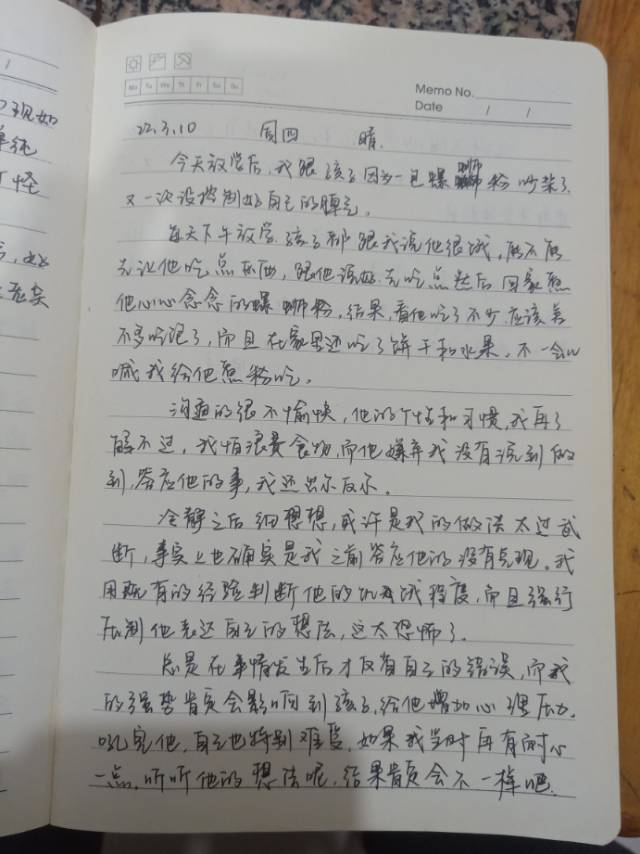 现如
单纯
怪
Mo Tu We Th Fr Sa Su
Memo No.
Date / /
22.3.10 周四 晴.
今天放学后,我跟孩子因为一包螺蛳粉吵架了.
又一次没控制好自己的脾气。
每天下午放学,孩子都跟我说他很饿,
先让他吃点东西,跟他说好先吃点然后回家煮
他心心念念的螺蛳粉,结果,看他吃了不少,应该差
不多吃饱了,而且在家里还吃了饼干和水果,不一会儿
喊我给他煮粉吃。
沟通的很不愉快,他的个性和习惯,我再了
解不过,我怕浪费食物,而他嫌弃我没有说到做
到,答应他的事,我还出尔反尔。
冷静之后细想想,或许是我的做法太过武
断,事实上也确实是我之前答应他的没有兑现。我
用既有的经验判断他的饥饿程度,而且强行
压制他表达自己的想法,这太恐怖了。
总是在事情发生后才反省自己的错误,而我
的强势肯定会影响到孩子,给他增加心理压力.
吼完他,自己也特别难受,如果我当时再有耐心
一点,听听他的想法呢,结果肯定会不一样吧.